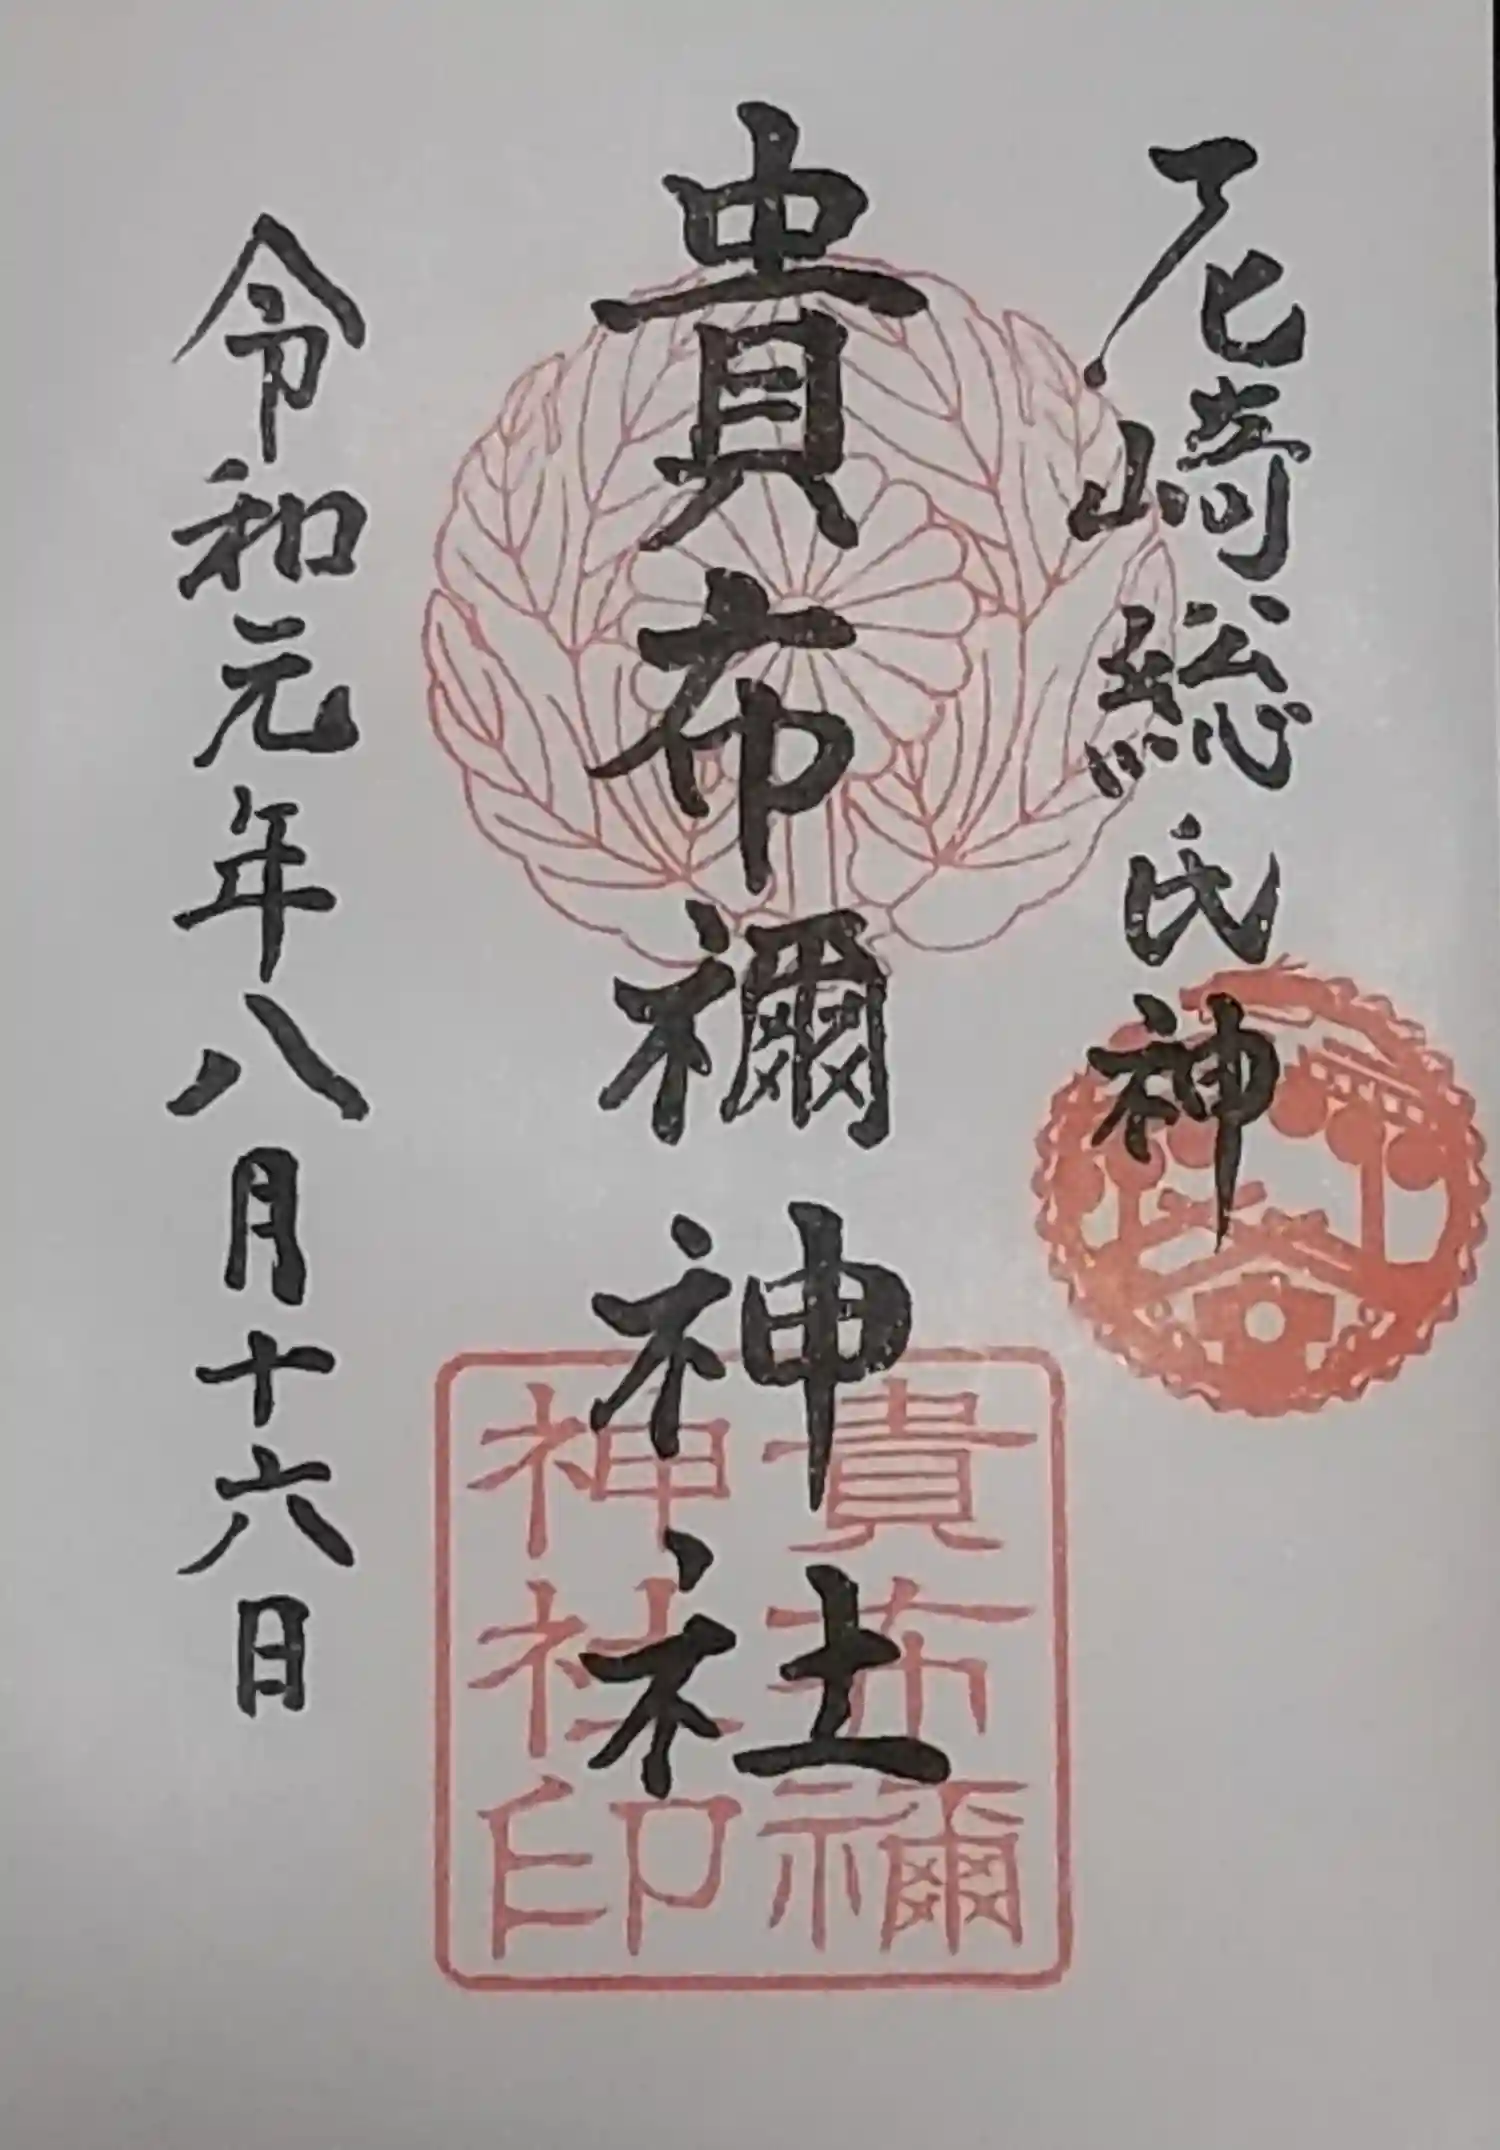 尼崎総氏神
貴布禰神社
貴布禰
神社印
令和元年八月十六日